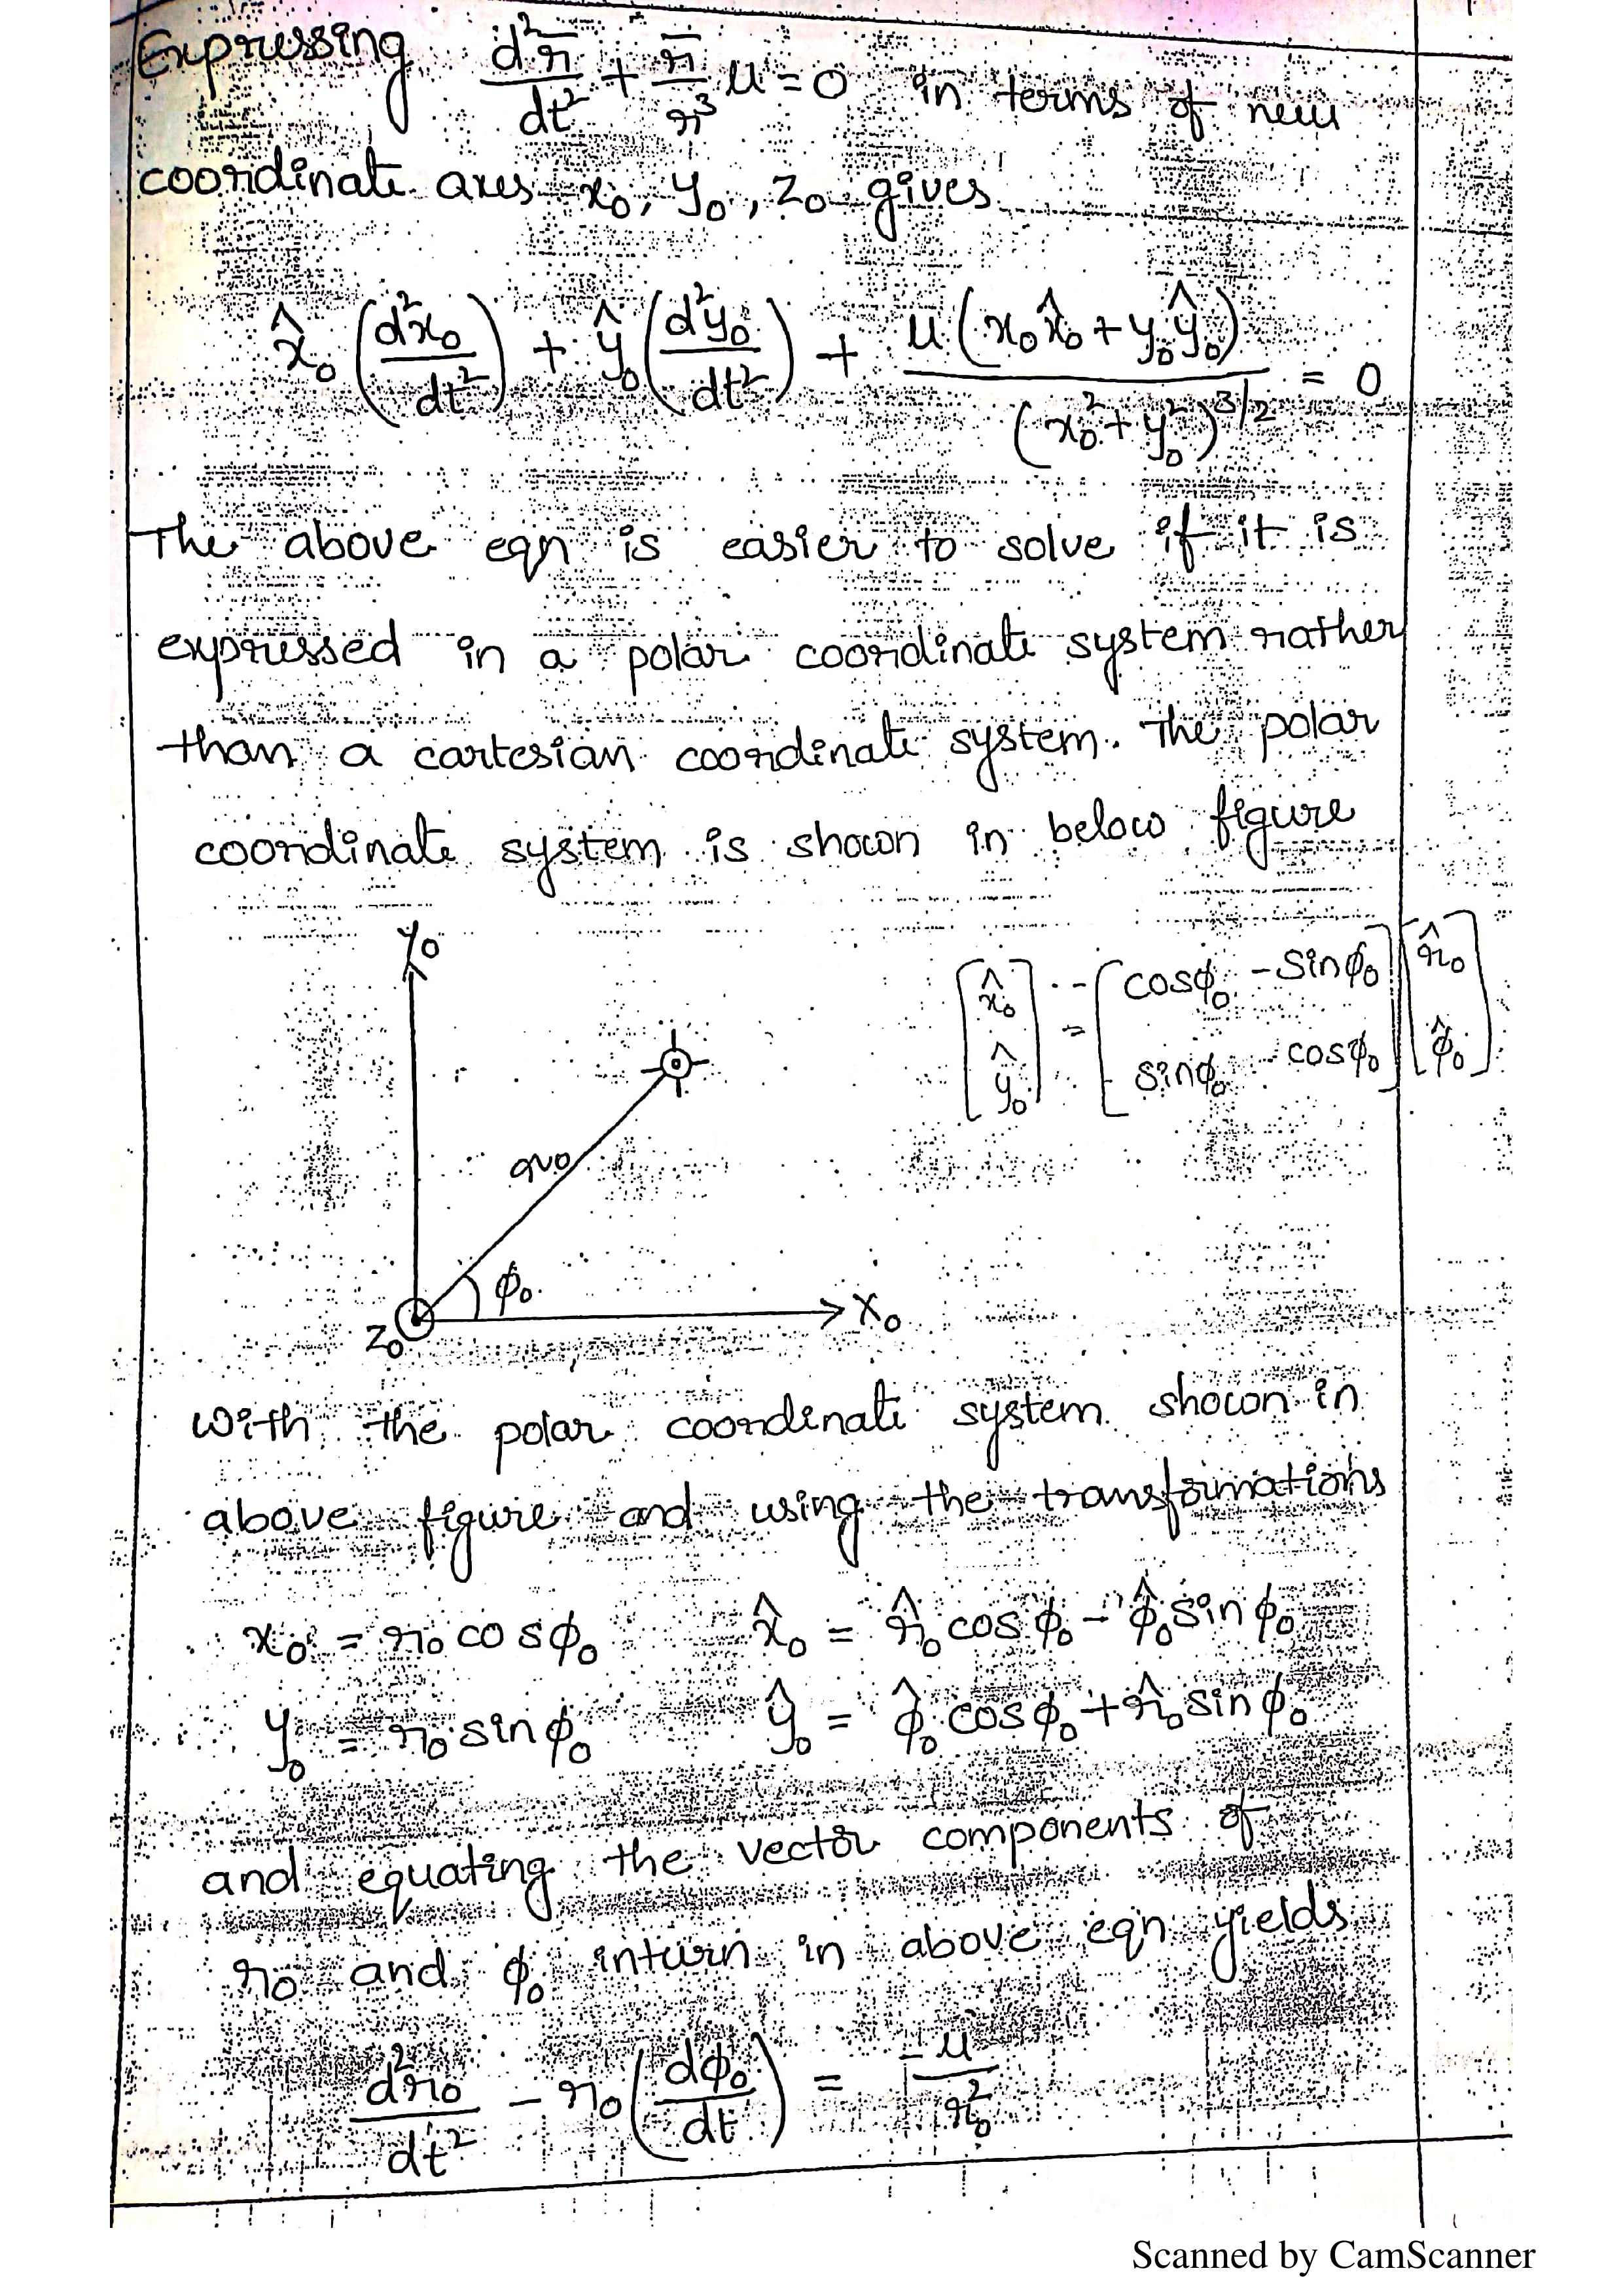 Expressing d²r̄/dt² + r̄/r³ μ = 0 in terms of new
coordinate axes x₀, y₀, z₀ gives
x̂₀ (d²x₀/dt²) + ŷ₀ (d²y₀/dt²) + μ(x₀x̂₀ + y₀ŷ₀)/(x₀² + y₀²)^3/2 = 0
The above eqn is easier to solve if it is
expressed in a polar coordinate system rather
than a cartesian coordinate system. The polar
coordinate system is shown in below figure
y₀
[x̂₀ ŷ₀] = [cosφ₀ -sinφ₀ sinφ₀ cosφ₀] [r̂₀ φ̂₀]
r₀
φ₀
z₀
x₀
with the polar coordinate system shown in
above figure and using the transformations
x₀ = r₀ cosφ₀ x̂₀ = r̂₀ cosφ₀ - φ̂₀ sinφ₀
y₀ = r₀ sinφ₀ ŷ₀ = φ̂₀ cosφ₀ + r̂₀ sinφ₀
and equating the vector components of
r₀ and φ₀ inturn in above eqn yields
d²r₀/dt² - r₀ (dφ₀/dt) = -μ/r₀²
Scanned by CamScanner